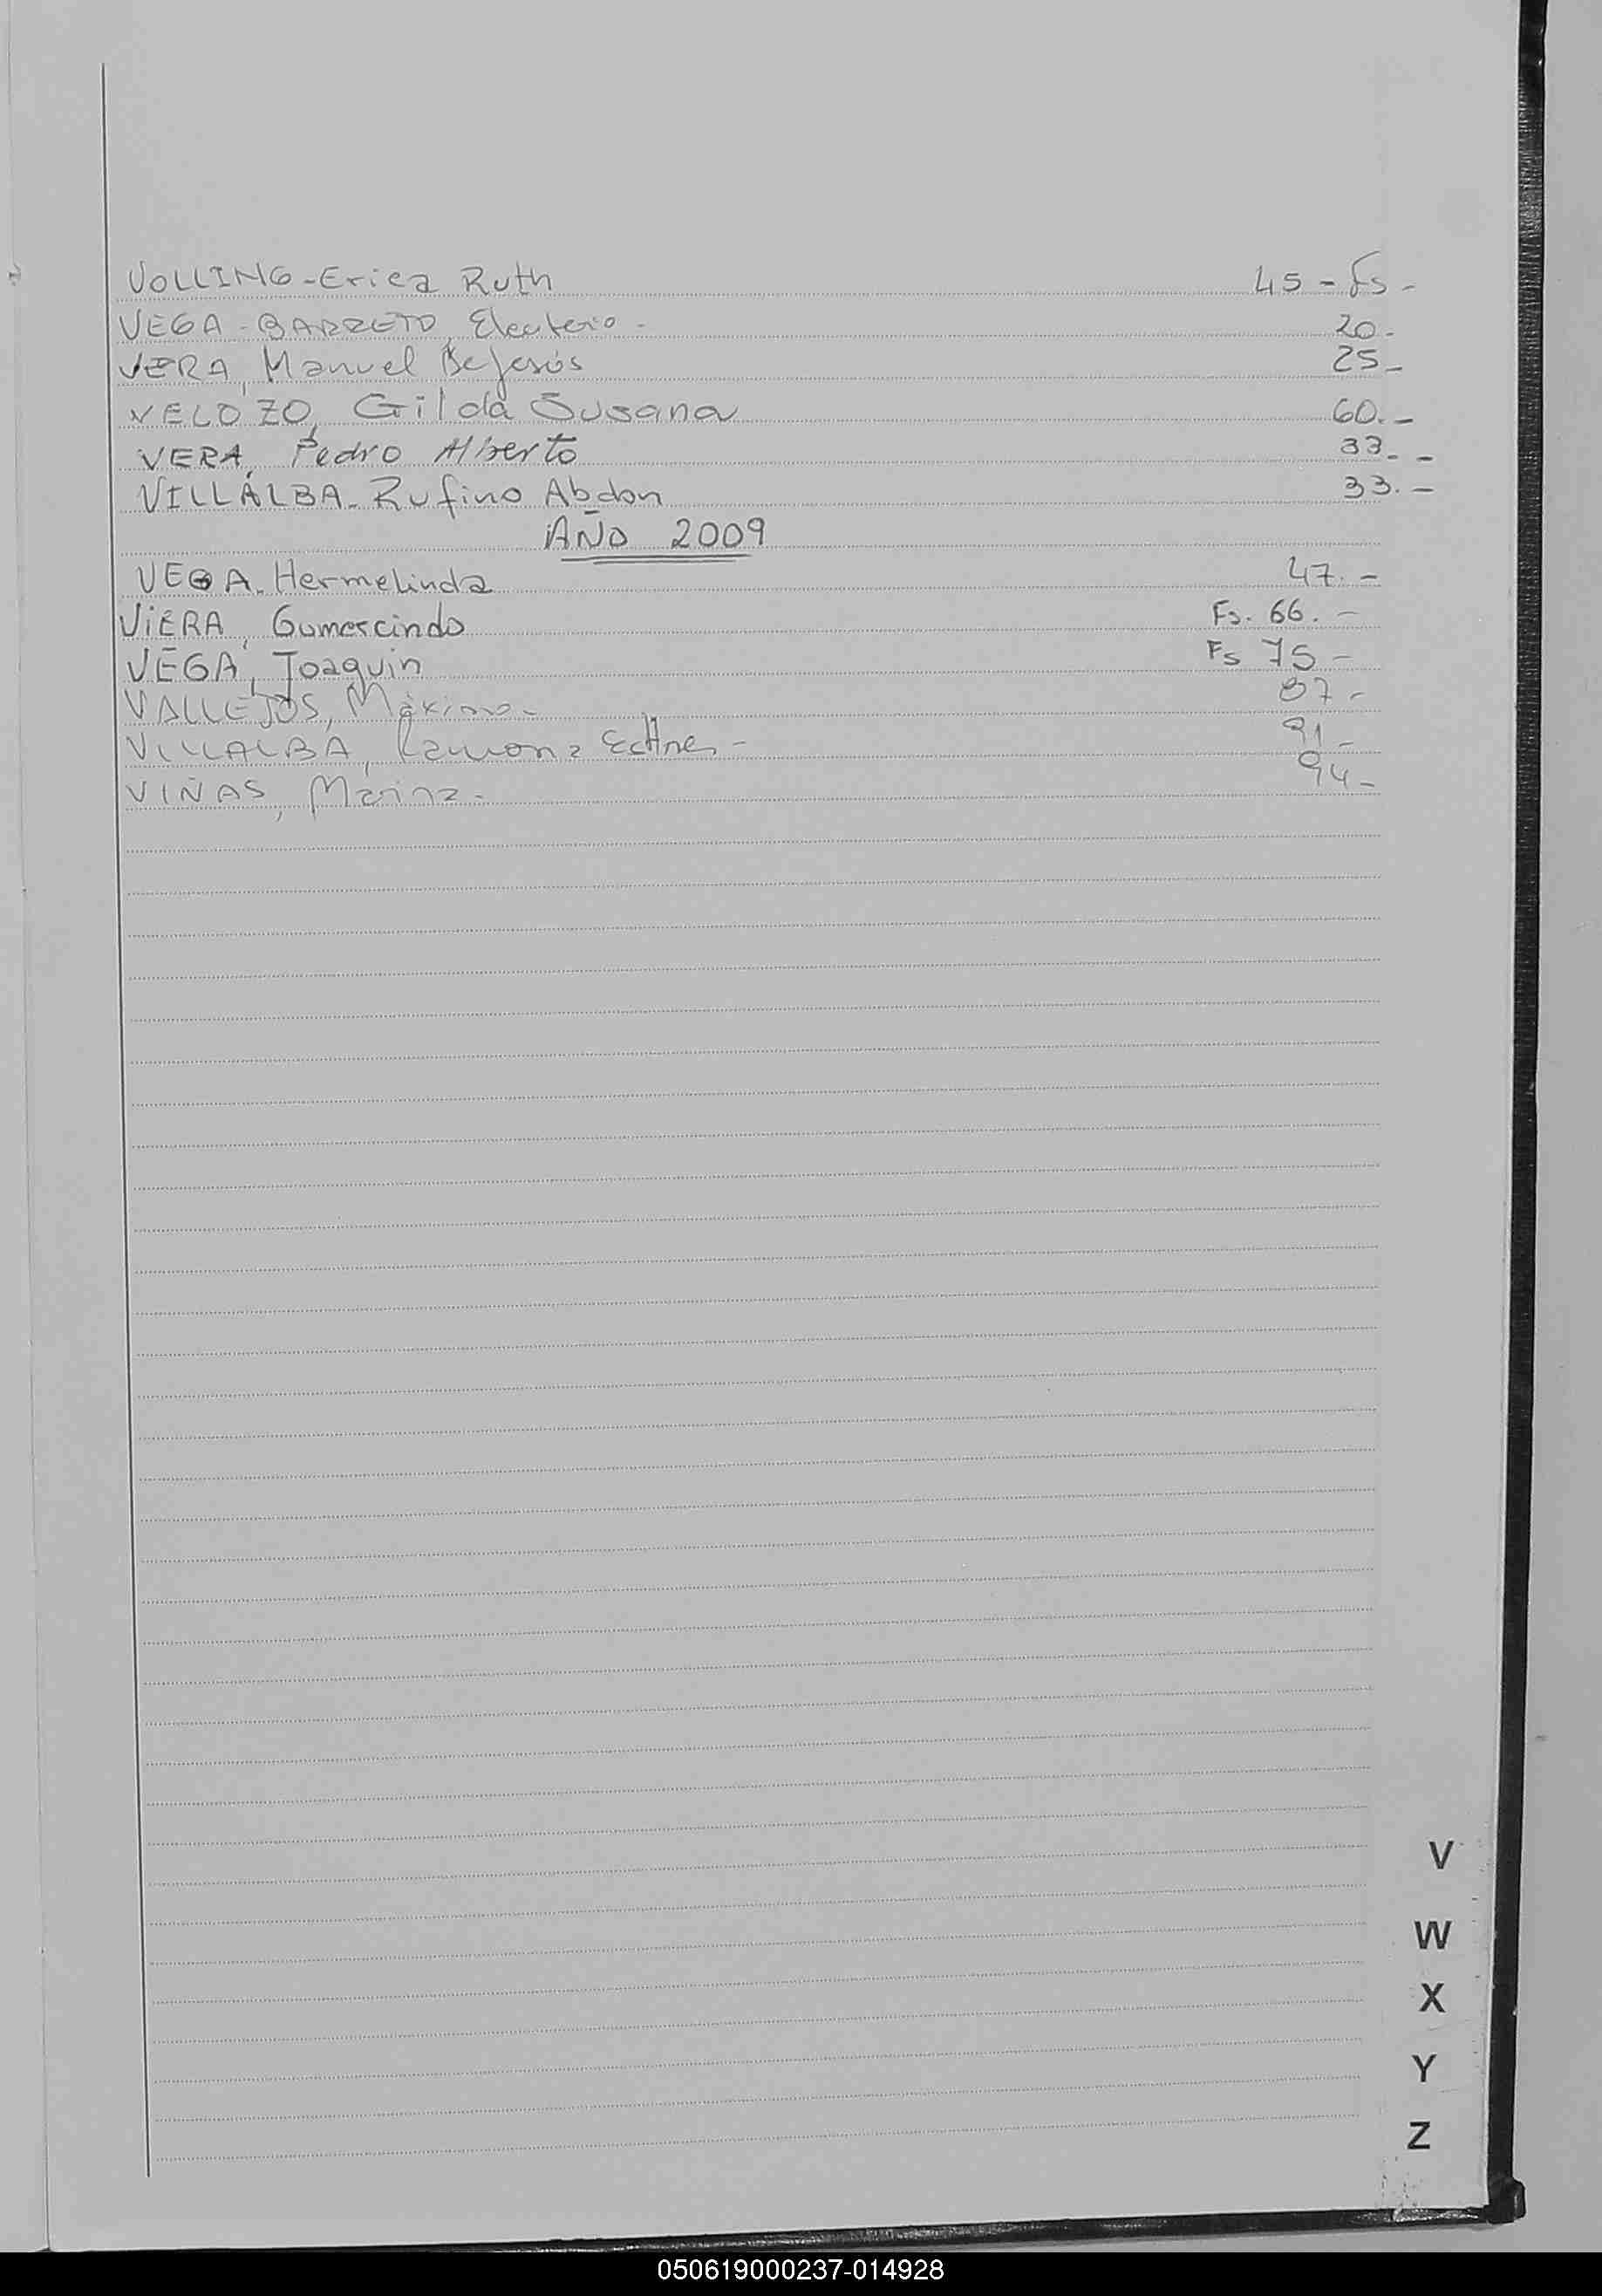 VOLLING - Erica Ruth 45 - Fs -
VEGA - BARRETO, Eleuterio - 20 -
VERA, Manuel De Jesús 25 -
VELOZO, Gilda Susana 60. -
VERA, Pedro Alberto 33. -
VILLALBA - Rufino Abdon 33. -
AÑO 2009
VEGA - Hermelinda 47. -
ViERA, Gumercindo Fs. 66. -
VEGA, Joaquin Fs 75 -
VALLEJOS, Máximo - 87 -
VILLALBA, Ramona - 91 -
VIÑAS, Marina - 94 -
V
W
X
Y
Z
050619000237-014928